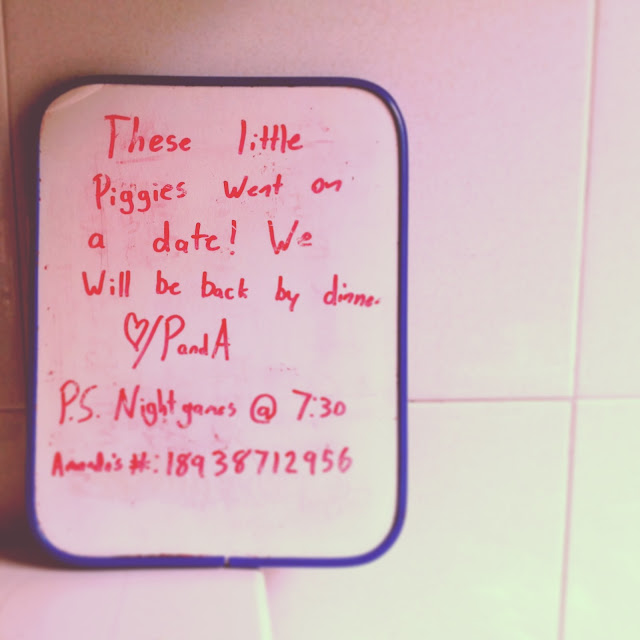 These little
Piggies went on
a date! We
Will be back by dinner
♡/PandA
P.S. Night games @ 7:30
Amanda's #: 18938712956